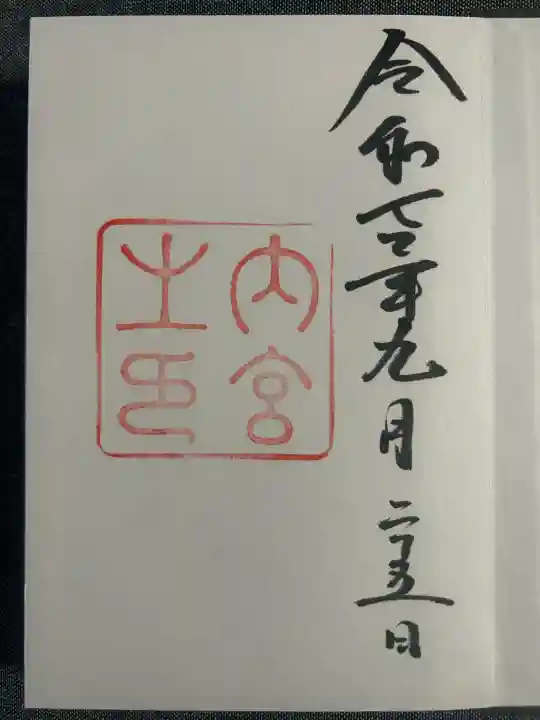 令和七年九月二十五日
内宮
之印